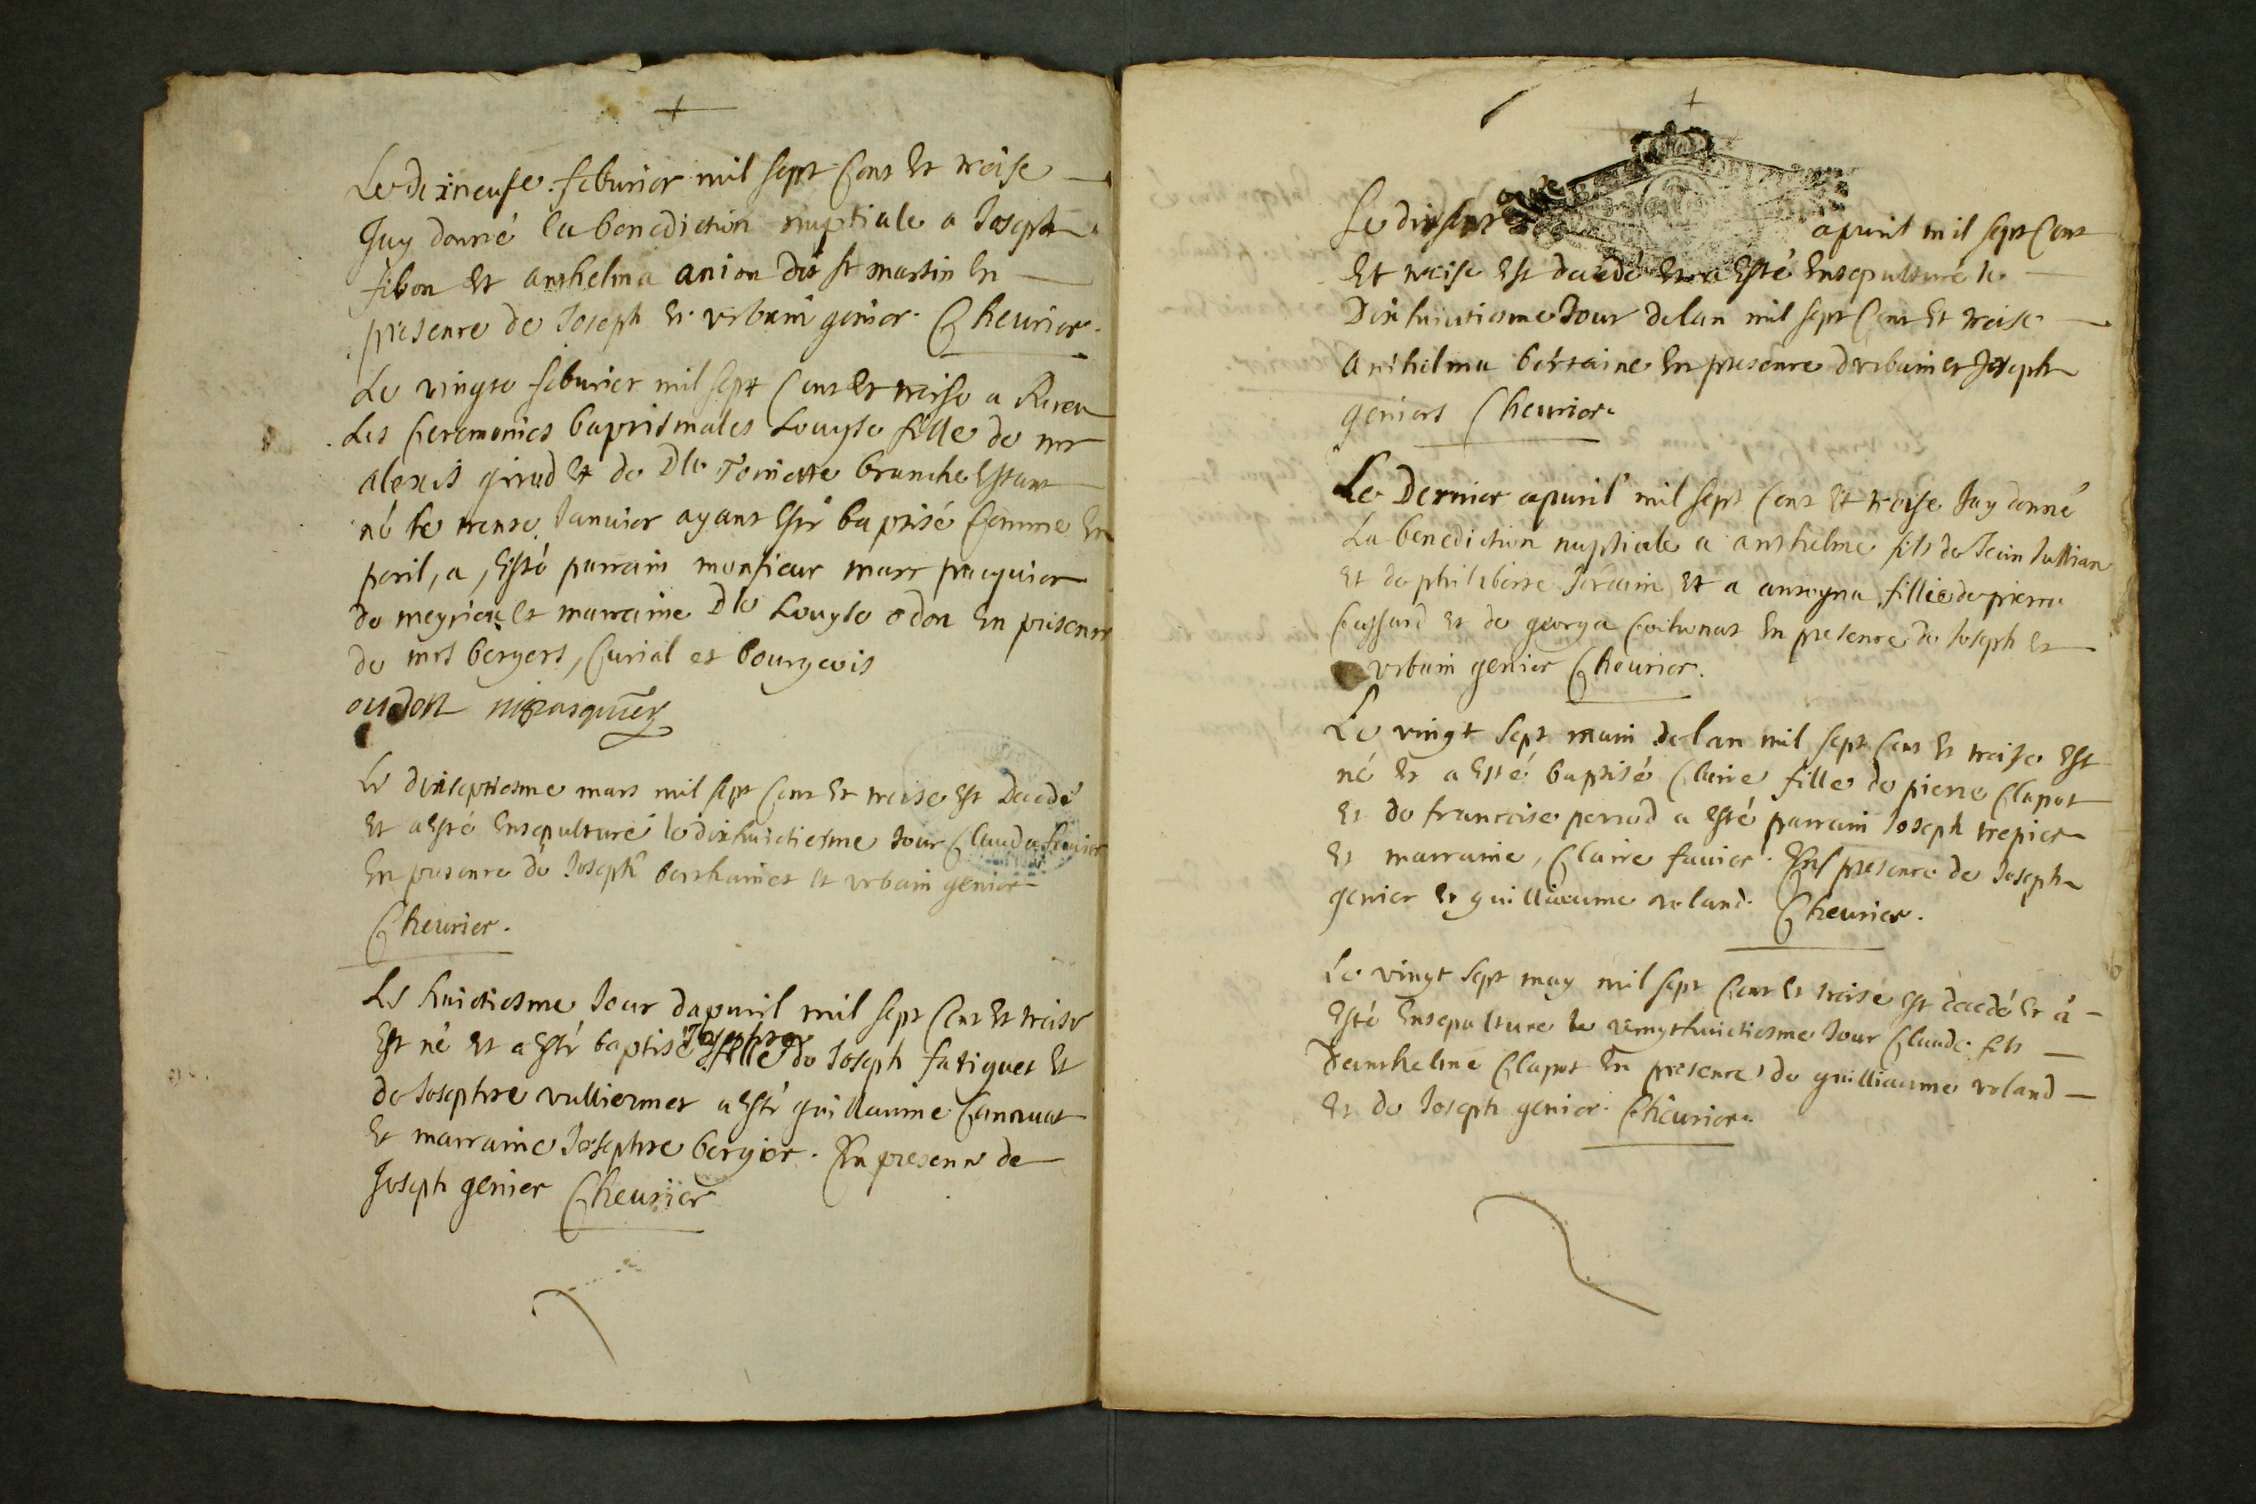 Le dixneufe feburier mil sept Cens Et treise
Jay donné la benediction nuptiale a Joseph
fibon Et anthelma anion dit st martin En
presence de Joseph Et vrbain genier Cheurier
Le vingte feburier mil sept Cens Et treise a Receu
Les Ceremonies baptismales Louyse fille de mr
alexis girud Et de Dlle Toinette branche Estant
né le trense Janvier ayant Esté baptisé Comme En
peril, a, Esté parrain monsieur marc pacquier
de meyrieu Et marraine Dlle Louyse odon En presence
de mrs bergers, Curial et bourgeois
oudon mpasquier
Le dixseptiesme mars mil sept Cens Et treise Est decedé
Et a Esté Ensepulturé le dixhuictiesme Jour Clauda
En presence de Joseph berthainet Et vrbain genier
Cheurier.
Le huictiesme Jour dapuril mil sept Cens Et treise
Est né Et a Esté baptisé Josephte fille de Joseph fatiguet Et
de Josephte vulliermet a Esté guillaume Cannuat
Et marraine Josephte bergier. En presence de
Joseph genier Cheurier
Le dixsept
apuril mil sept Cens
Et treise Est decedé Et a Esté Ensepulturé le
Dixhuictiesme Jour delan mil sept Cens Et treise
Anthelma bertaine En presence dvrbain et Joseph
geniers Cheurier
Le Dernier apuril mil sept Cens Et treise Jay donné
La benediction nuptiale a anthelme fils de Jean Jullian
Et de philiberte Jordain Et a anteyna fille de pierre
Cussard Et de georga En presence de Joseph Et
vrbain genier Cheurier.
Le vingt sept main delan mil sept Cens Et treise Est
né Et a Esté baptisé Claire fille de pierre Clapot
Et de francoise perrod a Esté parrain Joseph trepier
Et marraine, Claire fauier. En presence de Joseph
genier Et guilliaume roland Cheurier.
Le vingt sept may mil sept Cens Et treise Est decedé Et a
Esté Ensepulture le vingthuictiesme Jour Claude fils
Deanthelme Clapot En presence de guilliaume roland
Et de Joseph genier Cheurier